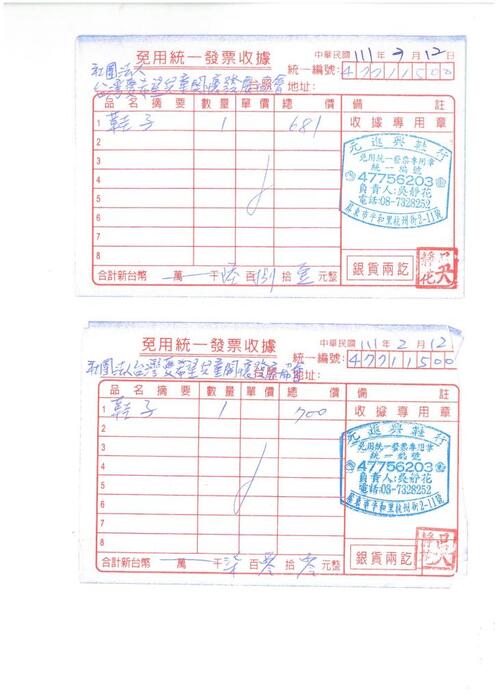 免用統一發票收據
中華民國 111 年 2 月 12 日
社團法人
統一編號: 47711500
地址:
品名摘要 數量 單價 總價 備註
1 鞋子 1 681 收據專用章
2
3
4
5
6
7
8
元進興鞋行
免用統一發票專用章
統一編號
47756203
負責人:吳靜花
電話:08-7328252
屏東市平和里杭州街2-11號
吳靜花
合計新台幣 萬 仟 陸 百 捌 拾 壹 元整
銀貨兩訖
免用統一發票收據
中華民國 111 年 2 月 12 日
統一編號: 47711500
地址:
品名摘要 數量 單價 總價 備註
1 鞋子 1 700 收據專用章
2
3
4
5
6
7
8
元進興鞋行
免用統一發票專用章
統一編號
47756203
負責人:吳靜花
電話:08-7328252
屏東市平和里杭州街2-11號
吳靜花
合計新台幣 萬 仟 柒 百 零 拾 零 元整
銀貨兩訖